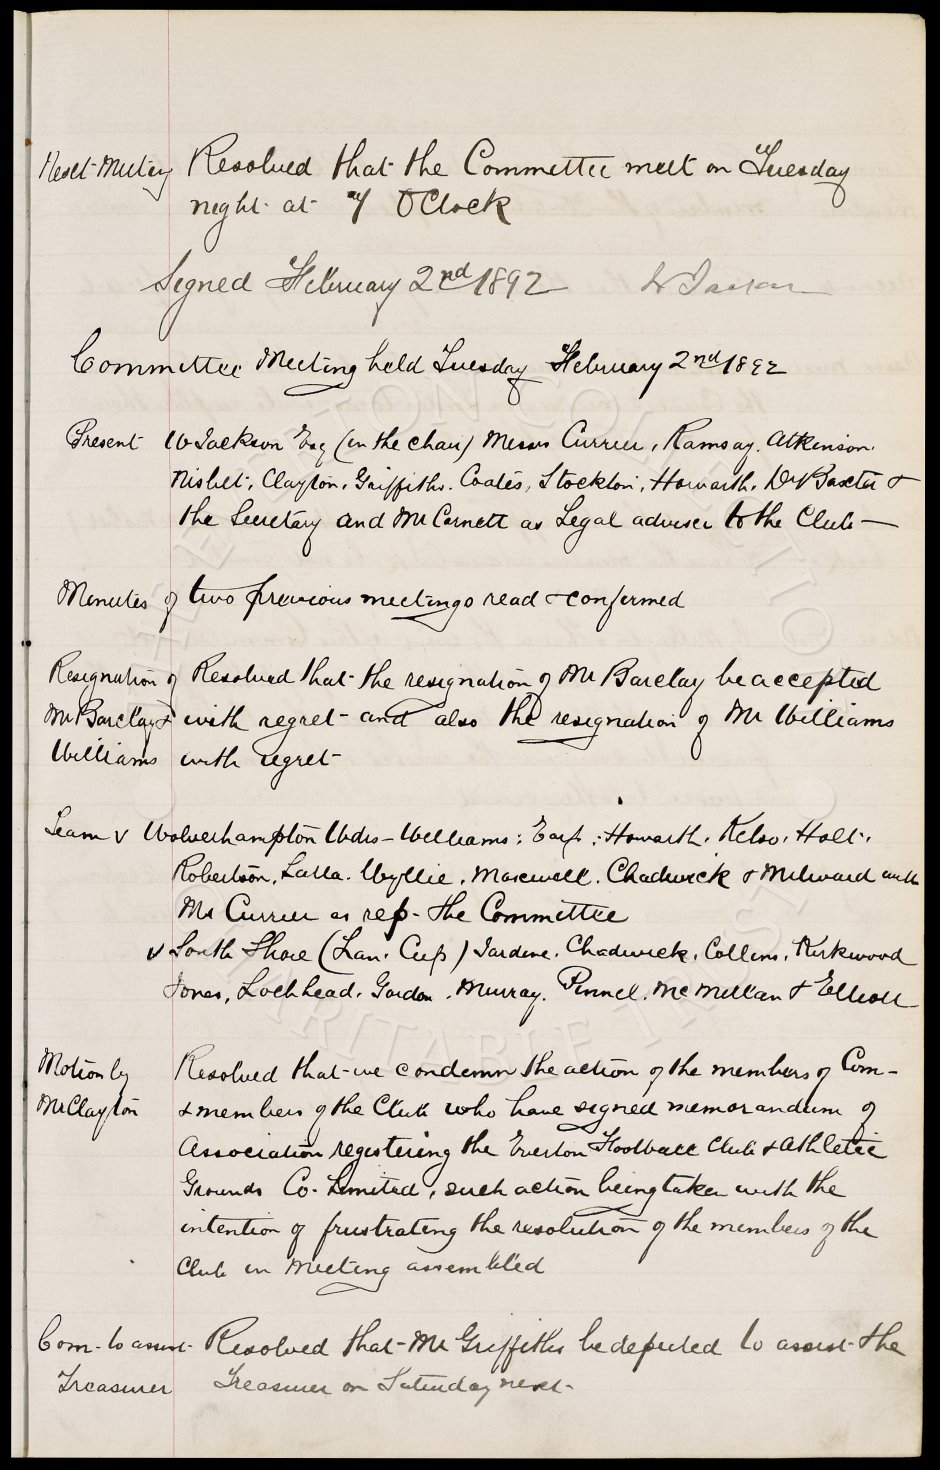 Next Meeting Resolved that the Committee meet on Tuesday
night at 7 OClock
Signed February 2nd 1892 W Jackson
Committee Meeting held Tuesday February 2nd 1892
Present W Jackson Esq (in the chair) Messrs Currier, Ramsay. Atkinson.
Nisbet, Clayton, Griffiths. Coates, Stockton, Howarth, Dr Baxter &
the Secretary and Mr Cornett as Legal adviser to the Club —
Minutes of two previous meetings read & confirmed
Resignation of Resolved that the resignation of Mr Barclay be accepted
Mr Barclay & with regret and also the resignation of Mr Williams
Williams with regret
Team v Wolverhampton Wdrs – Williams: Earp: Howarth. Kelso. Holt.
Robertson, Latta. Wyllie. Maxwell. Chadwick & Milward with
Mr Currier as rep. the Committee
v South Shore (Lan. Cup) Jardine. Chadwick. Collins. Kirkwood
Jones, Lochhead. Gordon. Murray. Pinnel. McMillan & Elliott
Motion by Resolved that we condemn the action of the members of Com–
Mr Clayton & members of the Club who have signed memorandum of
Association registering the Everton Football Club & Athletic
Grounds Co. Limited, such action being taken with the
intention of frustrating the resolution of the members of the
Club in Meeting assembled
Com– to assist Resolved that Mr Griffiths be deputed to assist the
Treasurer Treasurer on Saturday next.